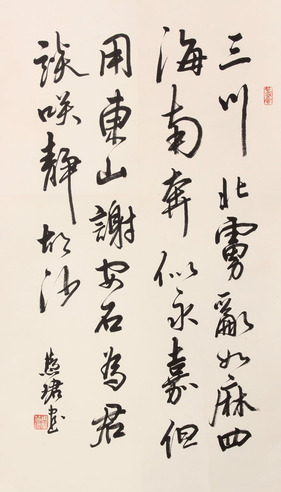 三川北虏亂如麻四
海南奔似永嘉但
用東山謝安石為君
談咲静胡沙
燕珺书